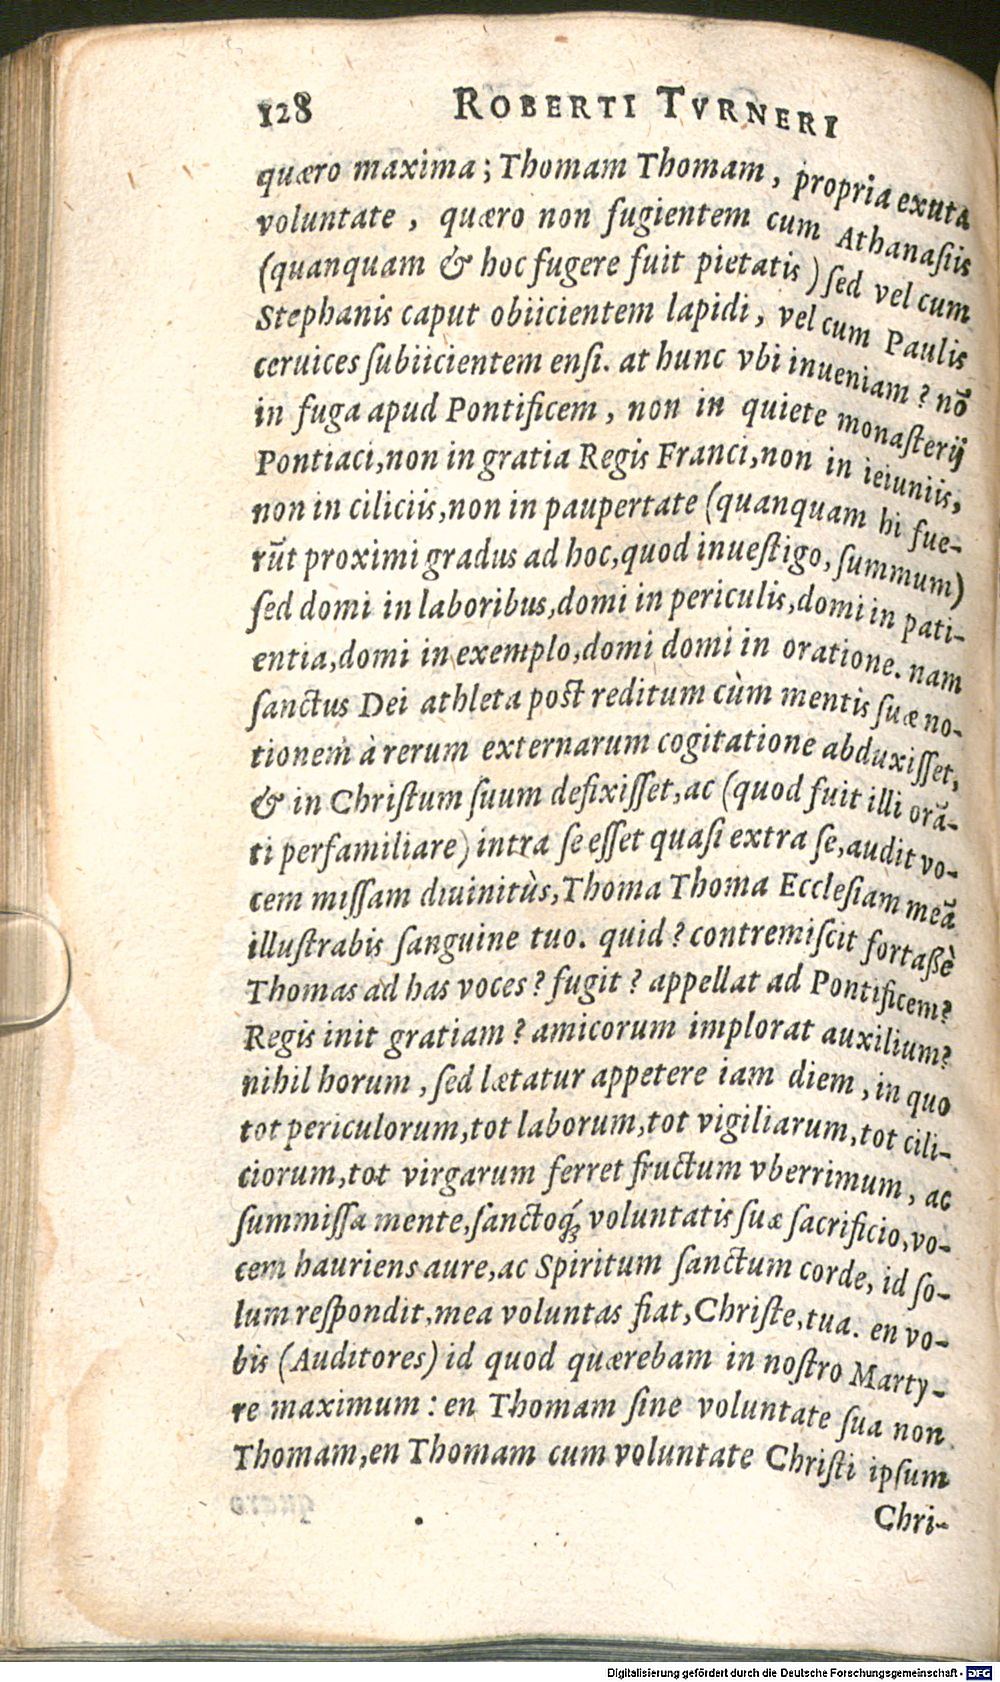 128 ROBERTI TVRNERI
quæro maxima; Thomam Thomam, propria exuta
voluntate, quæro non fugientem cum Athanasiis
(quanquam & hoc fugere fuit pietatis) sed vel cum
Stephanis caput obiicientem lapidi, vel cum Paulis
ceruices subiicientem ensi. at hunc vbi inueniam? nō
in fuga apud Pontificem, non in quiete monasterij
Pontiaci, non in gratia Regis Franci, non in ieiuniis,
non in ciliciis, non in paupertate (quanquam hi fue-
rūt proximi gradus ad hoc, quod inuestigo, summum)
sed domi in laboribus, domi in periculis, domi in pati-
entia, domi in exemplo, domi domi in oratione. nam
sanctus Dei athleta post reditum cùm mentis suæ no-
tionem à rerum externarum cogitatione abduxisset,
& in Christum suum defixisset, ac (quod fuit illi orā-
ti perfamiliare) intra se esset quasi extra se, audit vo-
cem missam diuinitùs, Thoma Thoma Ecclesiam meā
illustrabis sanguine tuo. quid? contremiscit fortaßè
Thomas ad has voces? fugit? appellat ad Pontificem?
Regis init gratiam? amicorum implorat auxilium?
nihil horum, sed lætatur appetere iam diem, in quo
tot periculorum, tot laborum, tot vigiliarum, tot cili-
ciorum, tot virgarum ferret fructum vberrimum, ac
summissa mente, sanctoq́; voluntatis suæ sacrificio, vo-
cem hauriens aure, ac Spiritum sanctum corde, id so-
lum respondit, mea voluntas fiat, Christe, tua. en vo-
bis (Auditores) id quod quærebam in nostro Marty-
re maximum: en Thomam sine voluntate sua non
Thomam, en Thomam cum voluntate Christi ipsum
Chri-
Digitalisierung gefördert durch die Deutsche Forschungsgemeinschaft - DFG